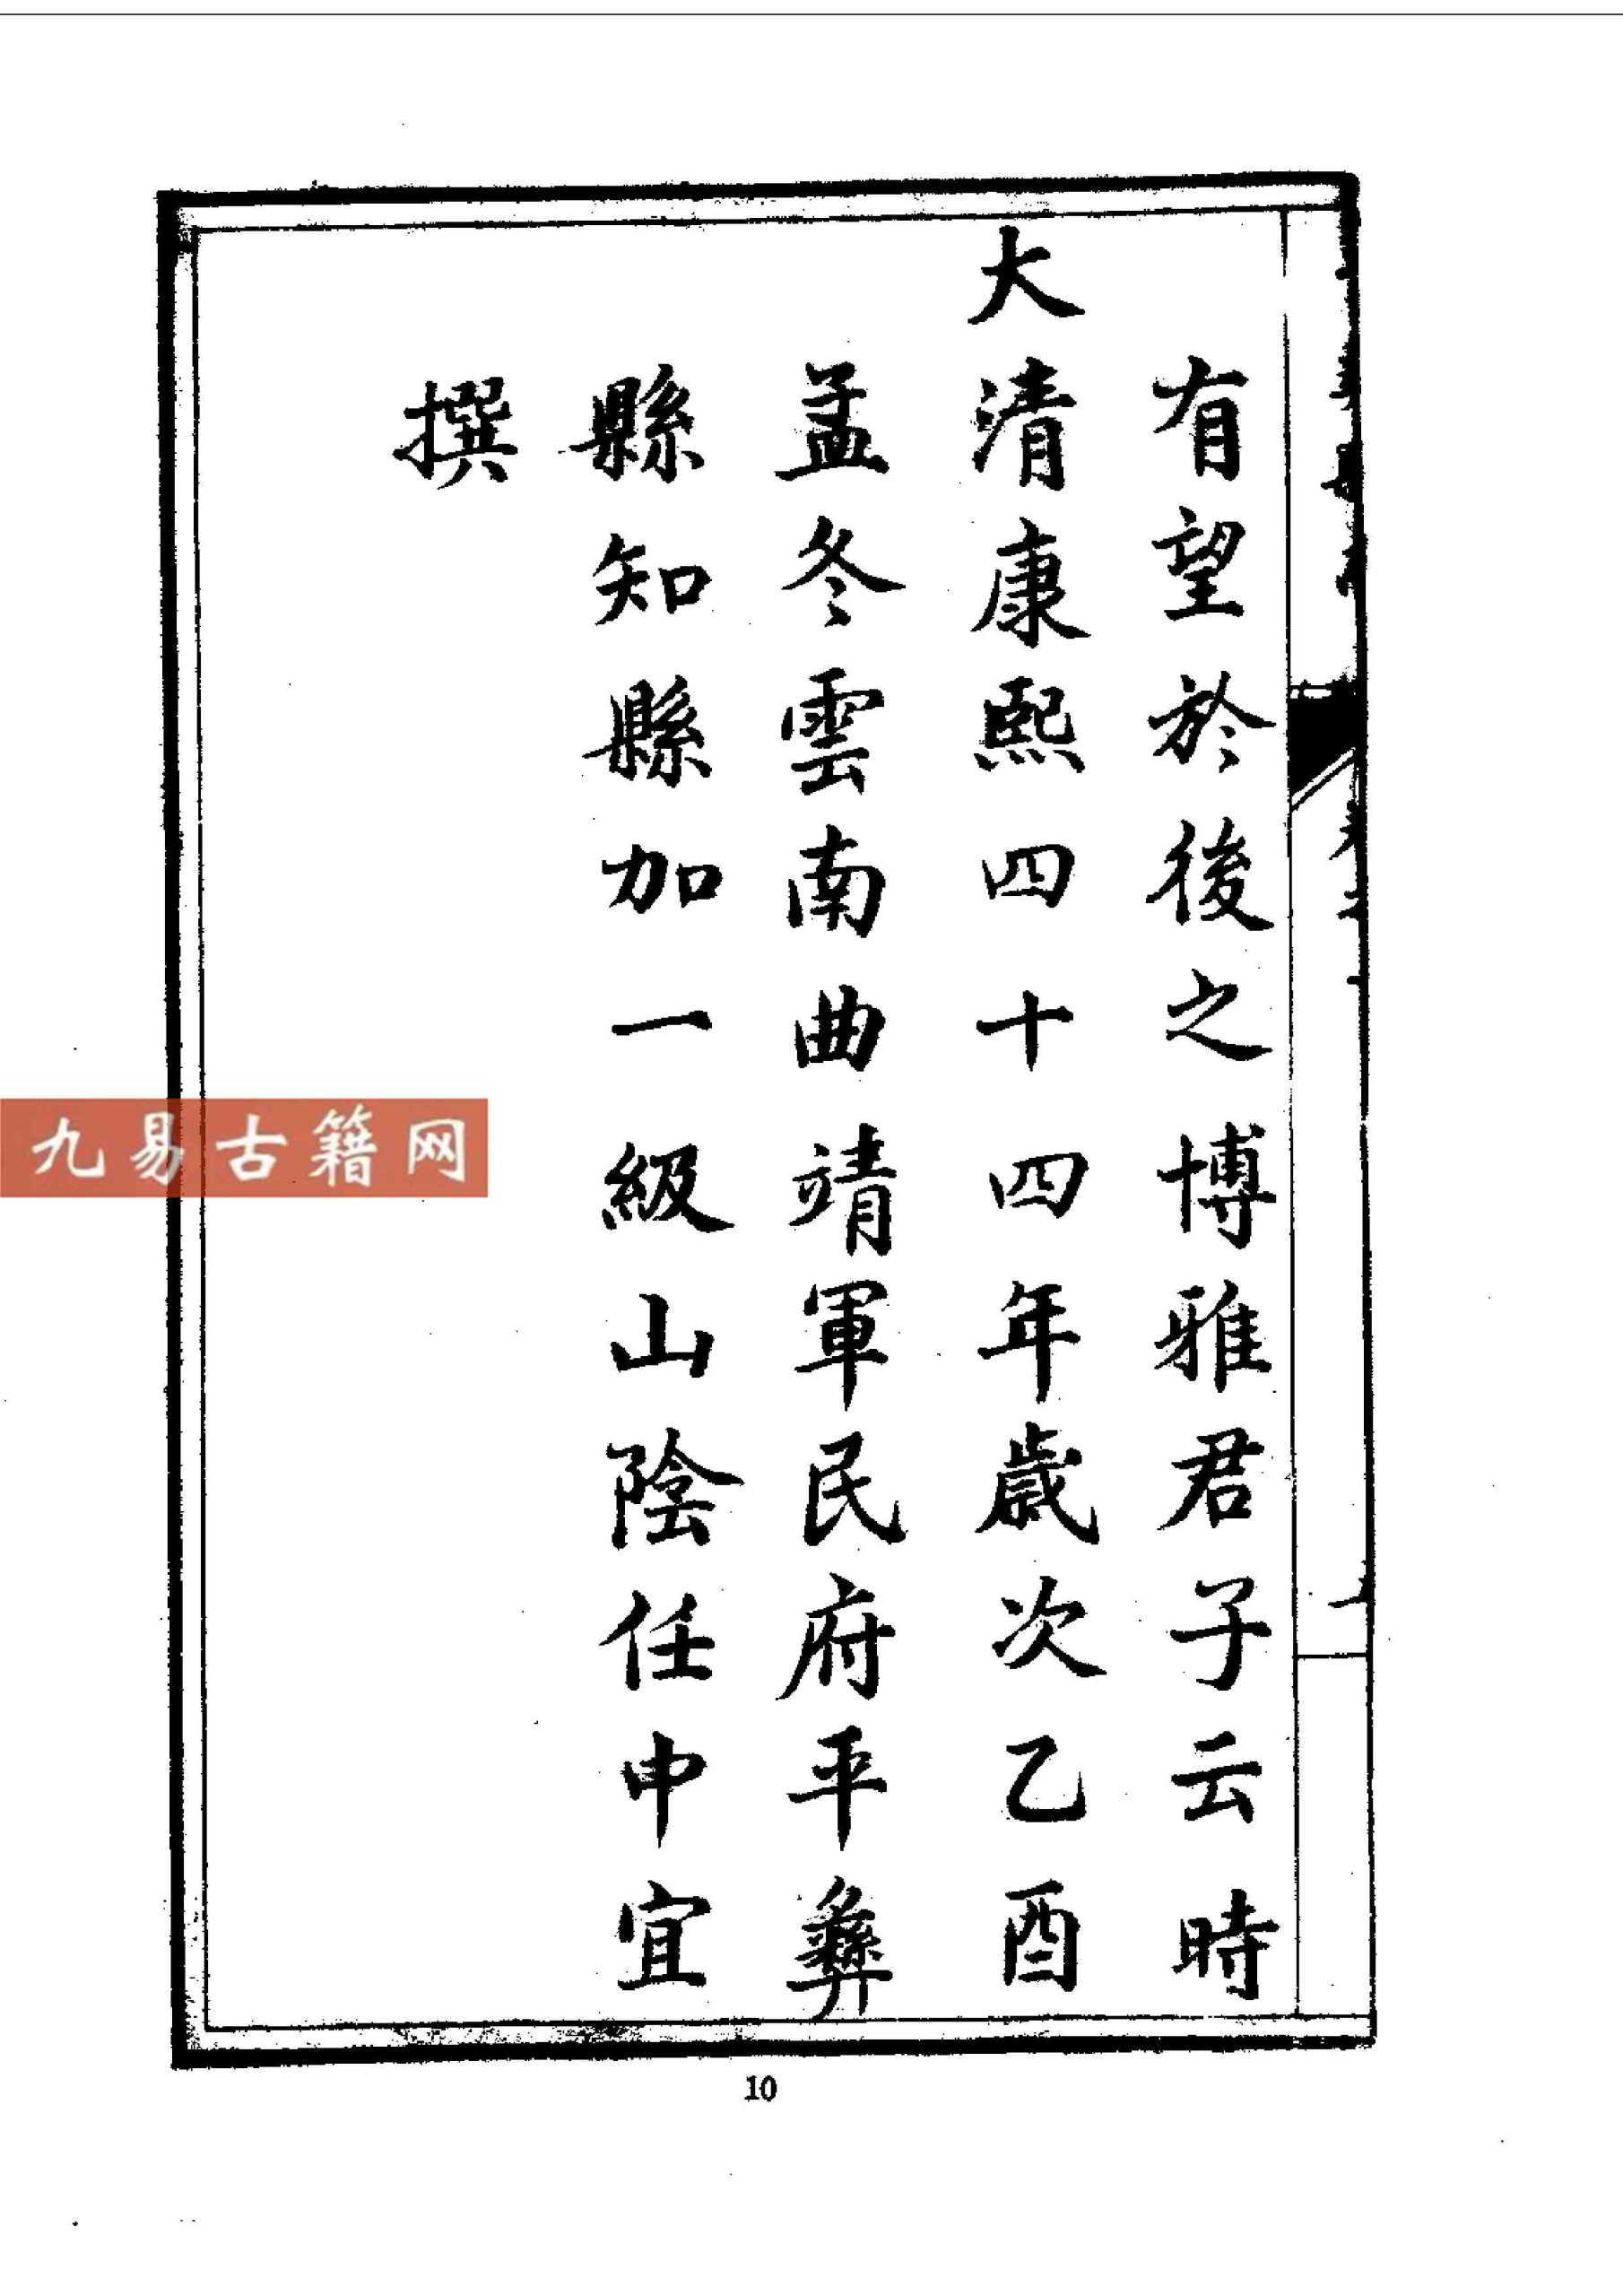 有望於後之博雅君子云時
大清康熙四十四年歲次乙酉
孟冬雲南曲靖軍民府平彝
縣知縣加一級山陰任中宜
撰
九易古籍网
10